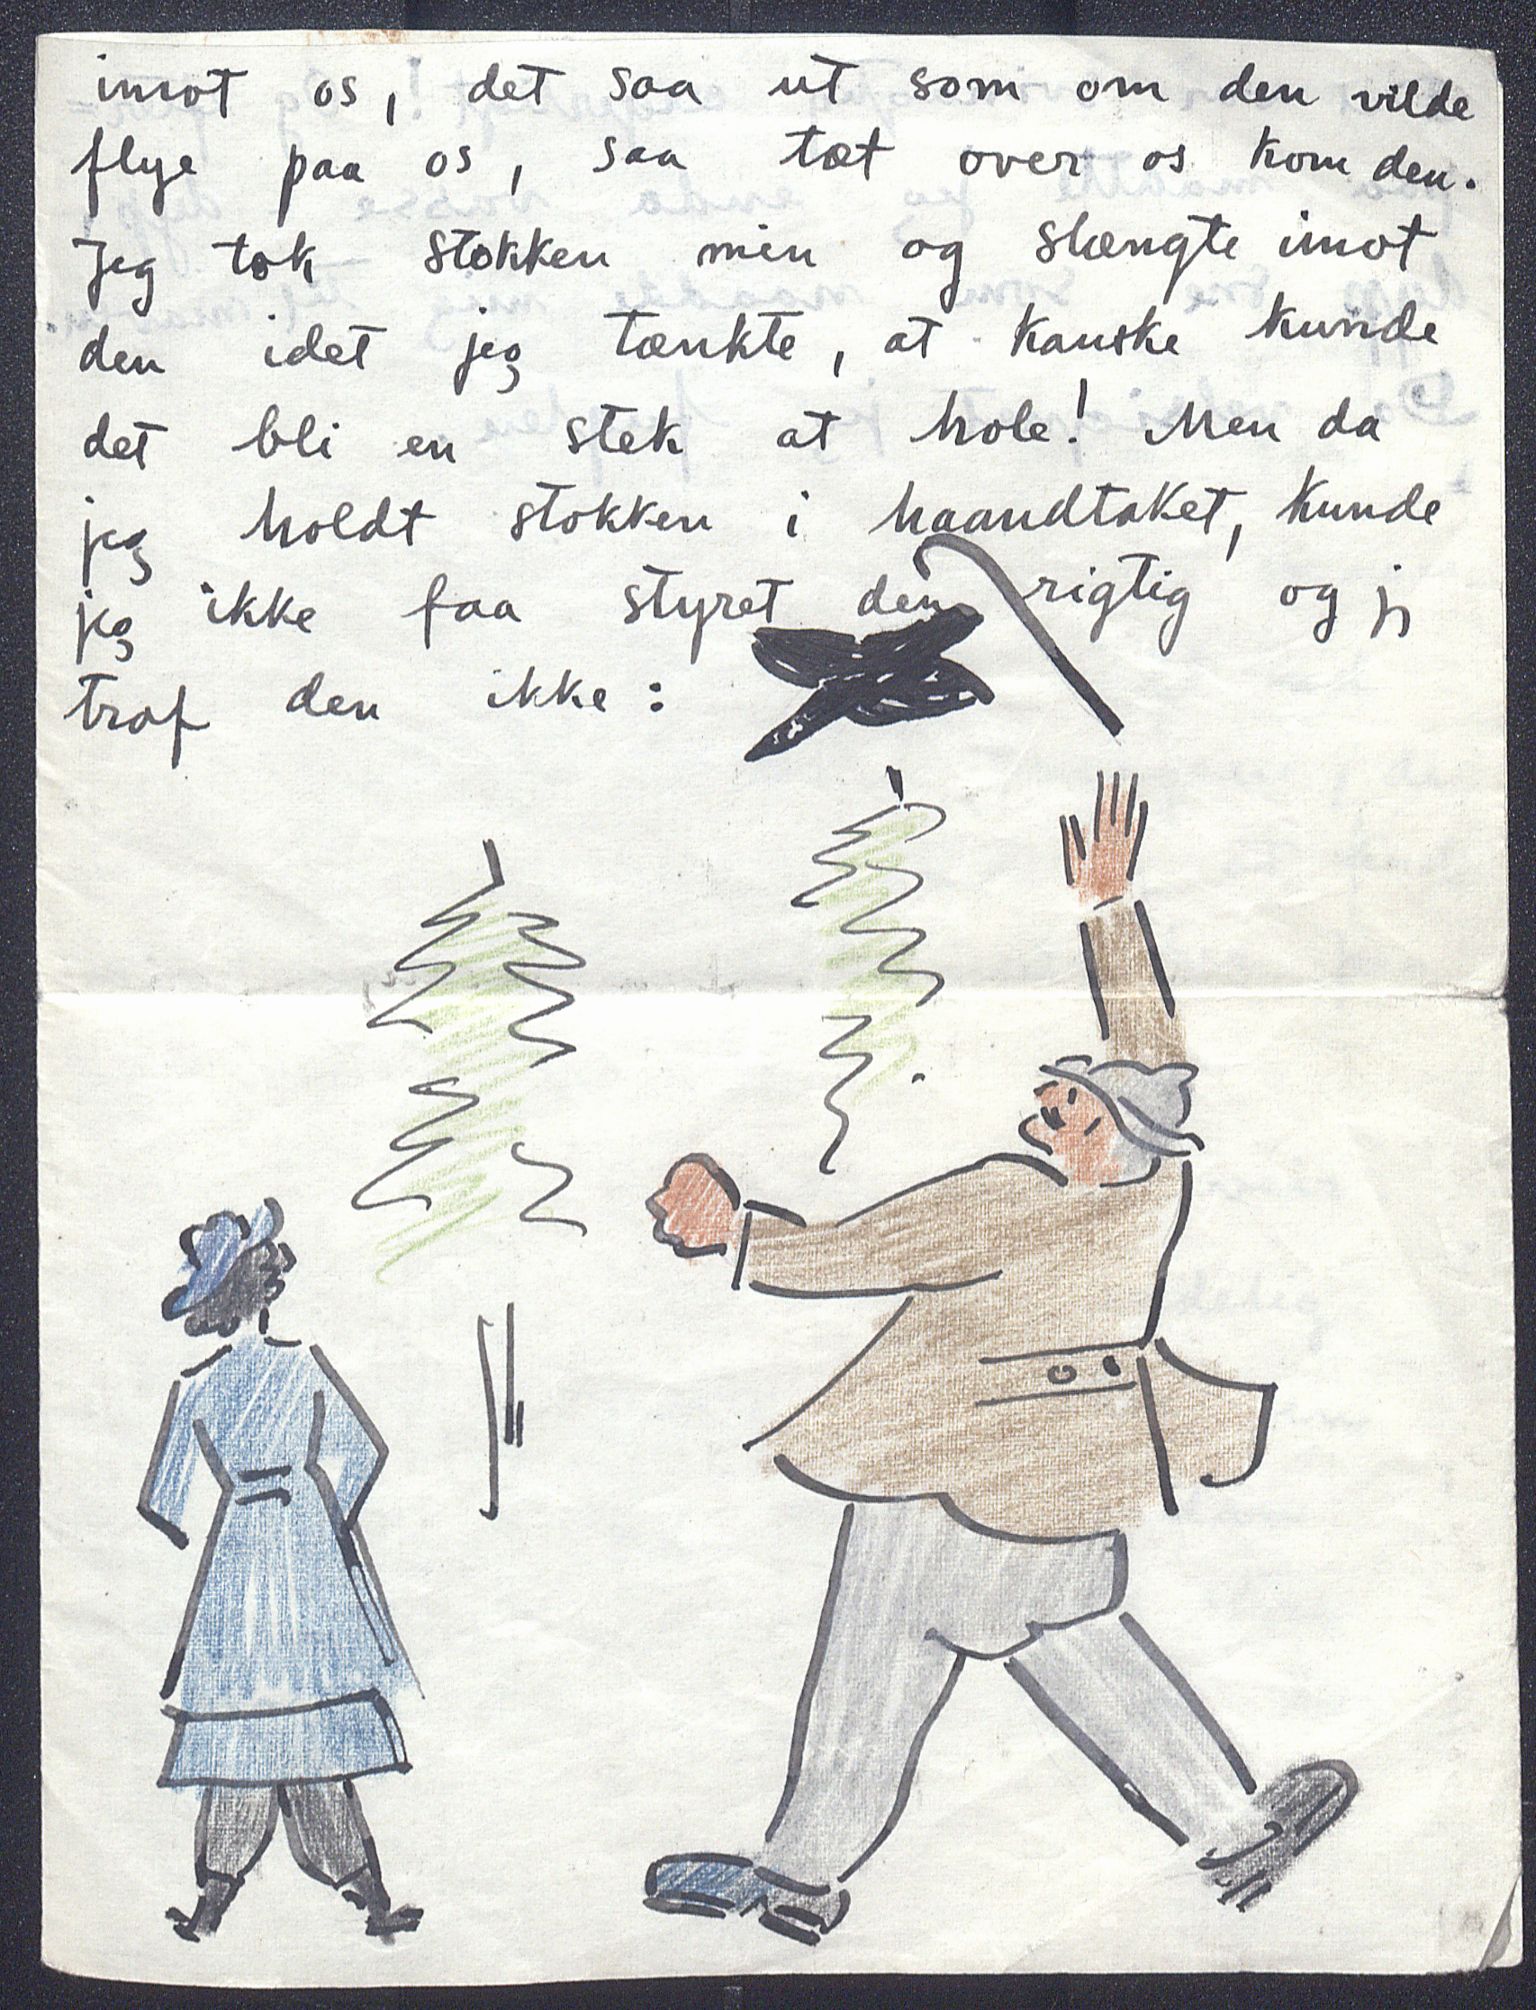 imot os, det saa ut som om den vilde
flye paa os, saa tæt over os kom den.
Jeg tok stokken min og slængte imot
den idet jeg tænkte, at kanske kunde
det bli en stek at hole! Men da
jeg holdt stokken i haandtaket, kunde
jeg ikke faa styret den rigtig og jeg
traf den ikke: